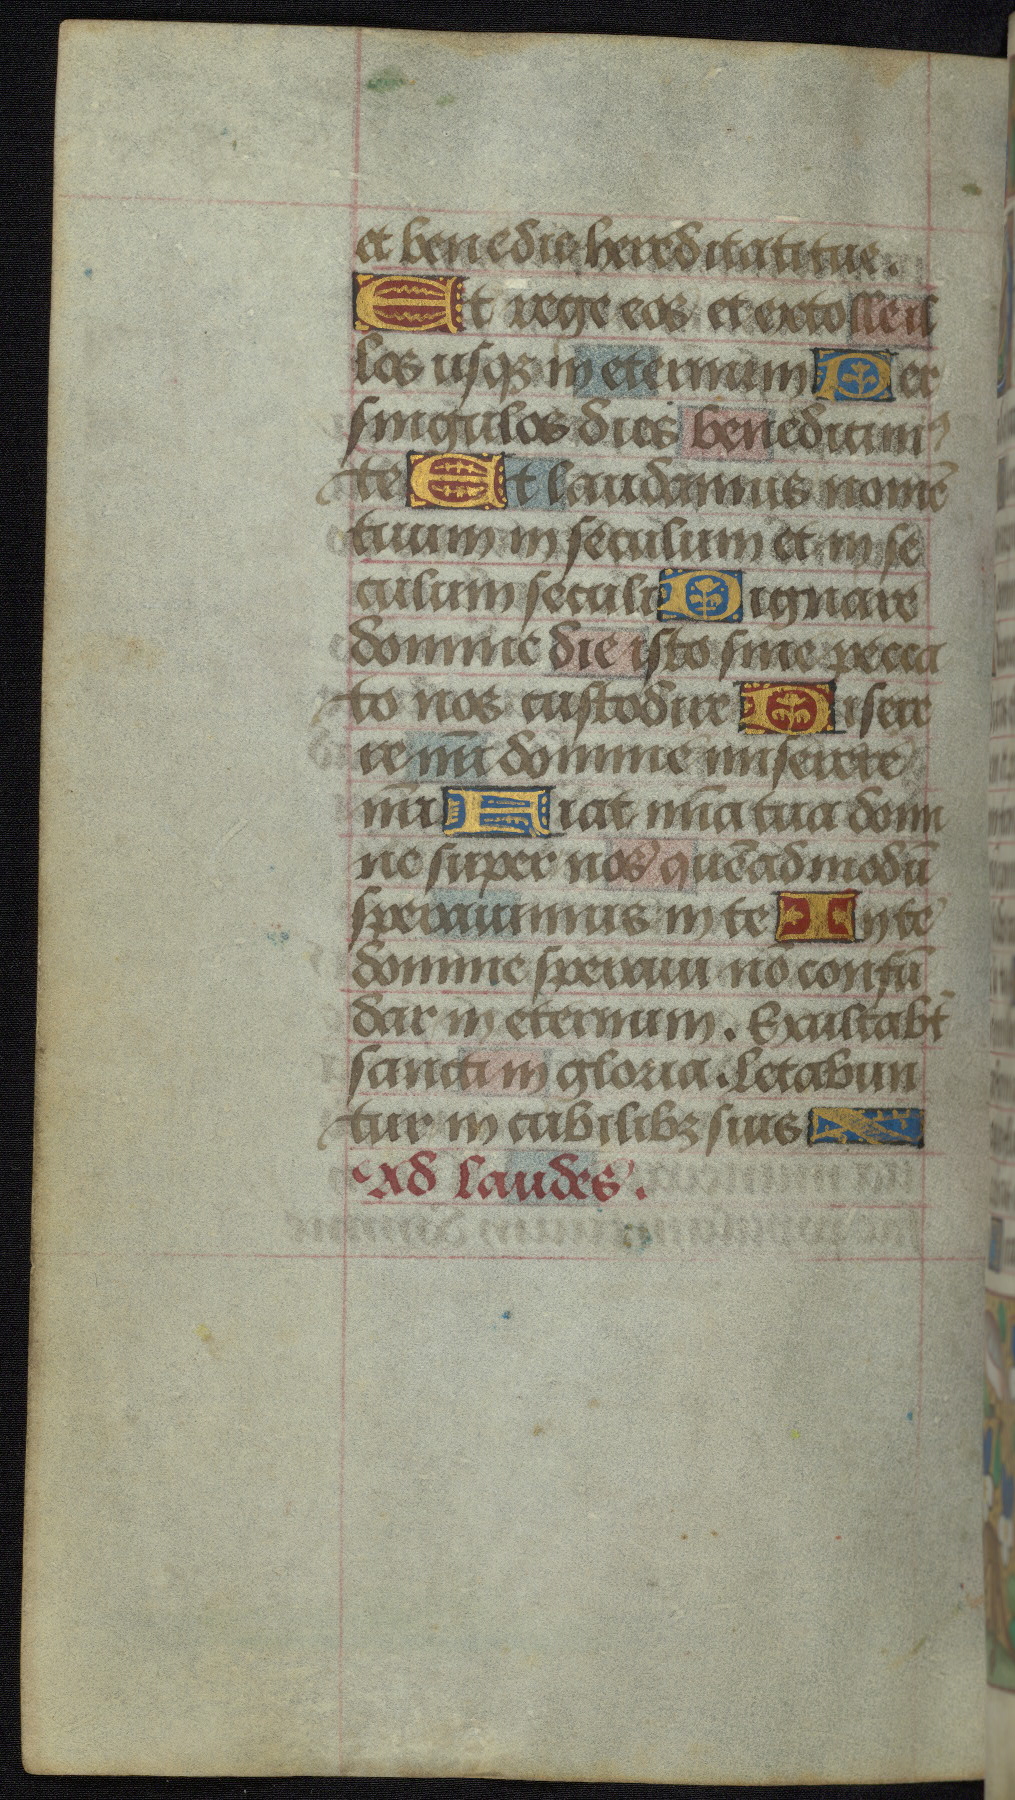 et benedic hereditati tue.
Et rege eos et extolle il
los usqꝫ in eternum Per
singulos dies benedicimꝰ
te Et laudamus nomē
tuum in seculum et in se
culum seculi Dignare
domine die isto sine pecca
to nos custodire Misere
re nr̄i domine miserere
nr̄i Fiat mīa tua domi
ne super nos quēadmodū
speravimus in te In te
domine speravi nō confū
dar in eternum. Exultabt̄
sancti in gloria. Letabun
tur in cubilibꝫ suis
Ad laudes.